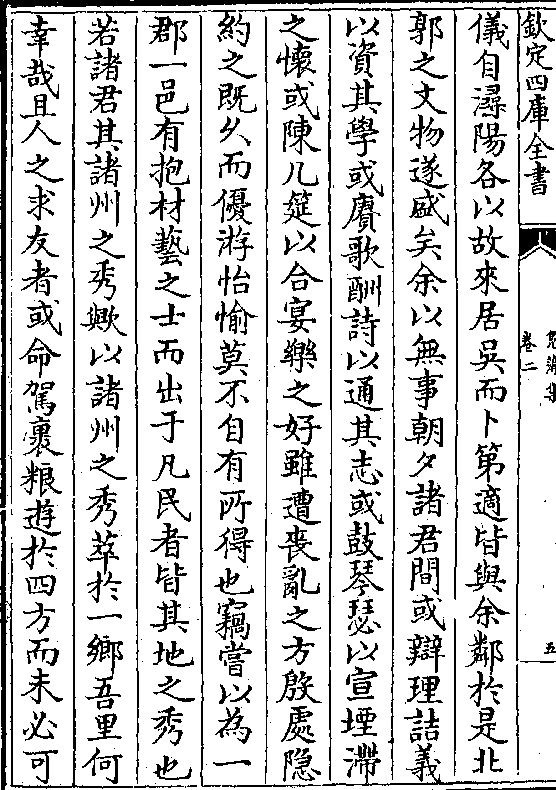 欽定四庫全書
鳧藻集
卷二
五
儀自潯陽各以故來居吳而卜第適皆與余鄰於是北
郭之文物遂盛矣余以無事朝夕諸君間或辯理詰義
以資其學或賡歌酬詩以通其志或鼓琴瑟以宣堙滯
之懷或陳几筵以合宴樂之好雖遭喪亂之方殷處隐
約之既久而優游怡愉莫不自有所得也竊嘗以為一
郡一邑有抱材藝之士而出于凡民者皆其地之秀也
若諸君其諸州之秀歟以諸州之秀萃於一鄉吾里何
幸哉且人之求友者或命駕裹粮遊於四方而未必可